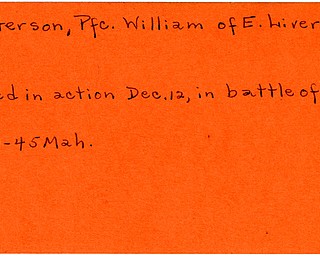 erson, Pfc. William of E. Liver
d in action Dec. 12, in battle of
-45 Mah.